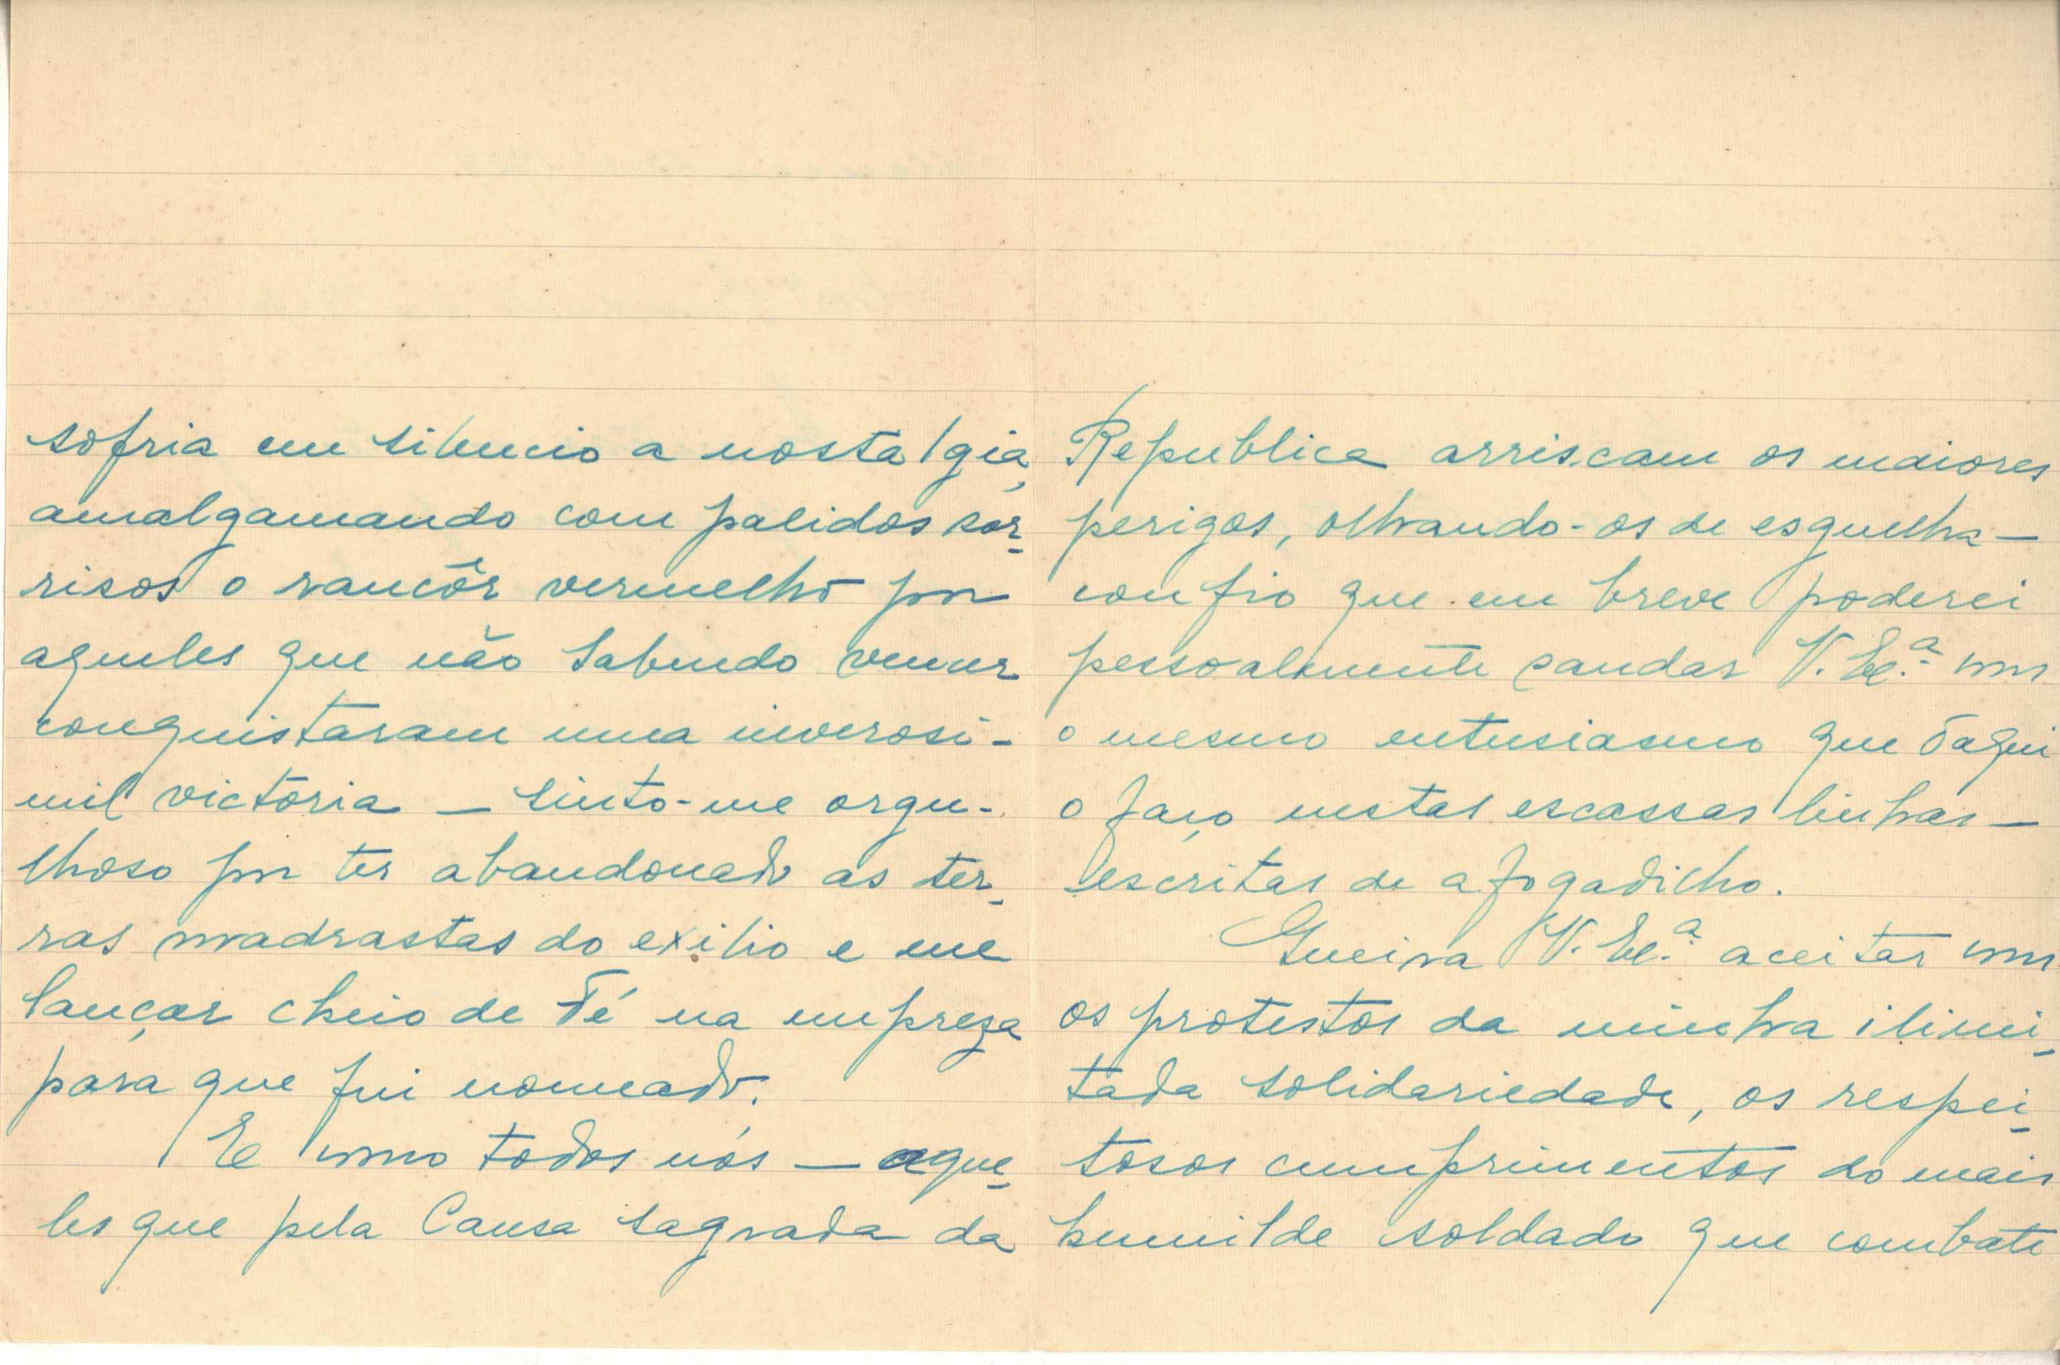 sofria em silencio a nostalgia,
amalgamando com palidos sor-
risos o rancôr vermelho por
aqueles que não sabendo vencer
conquistaram uma inverosi-
mil victoria — sinto-me orgu-
lhoso por ter abandonado as ter-
ras madrastas do exilio e me
lançar cheio de Fé na empreza
para que fui nomeado.
E como todos nós — aque-
les que pela Causa sagrada da
Republica arriscam os maiores
perigos, olhando-os de esguelha —
confio que em breve poderei
pessoalmente saudar V. Ex.ª com
o mesmo entusiasmo que daqui
o faço nestas escassas linhas —
escritas de afogadilho.
Queira V. Ex.ª aceitar com
os protestos da minha ilimi-
tada solidariedade, os respei-
tosos cumprimentos do mais
humilde soldado que combate